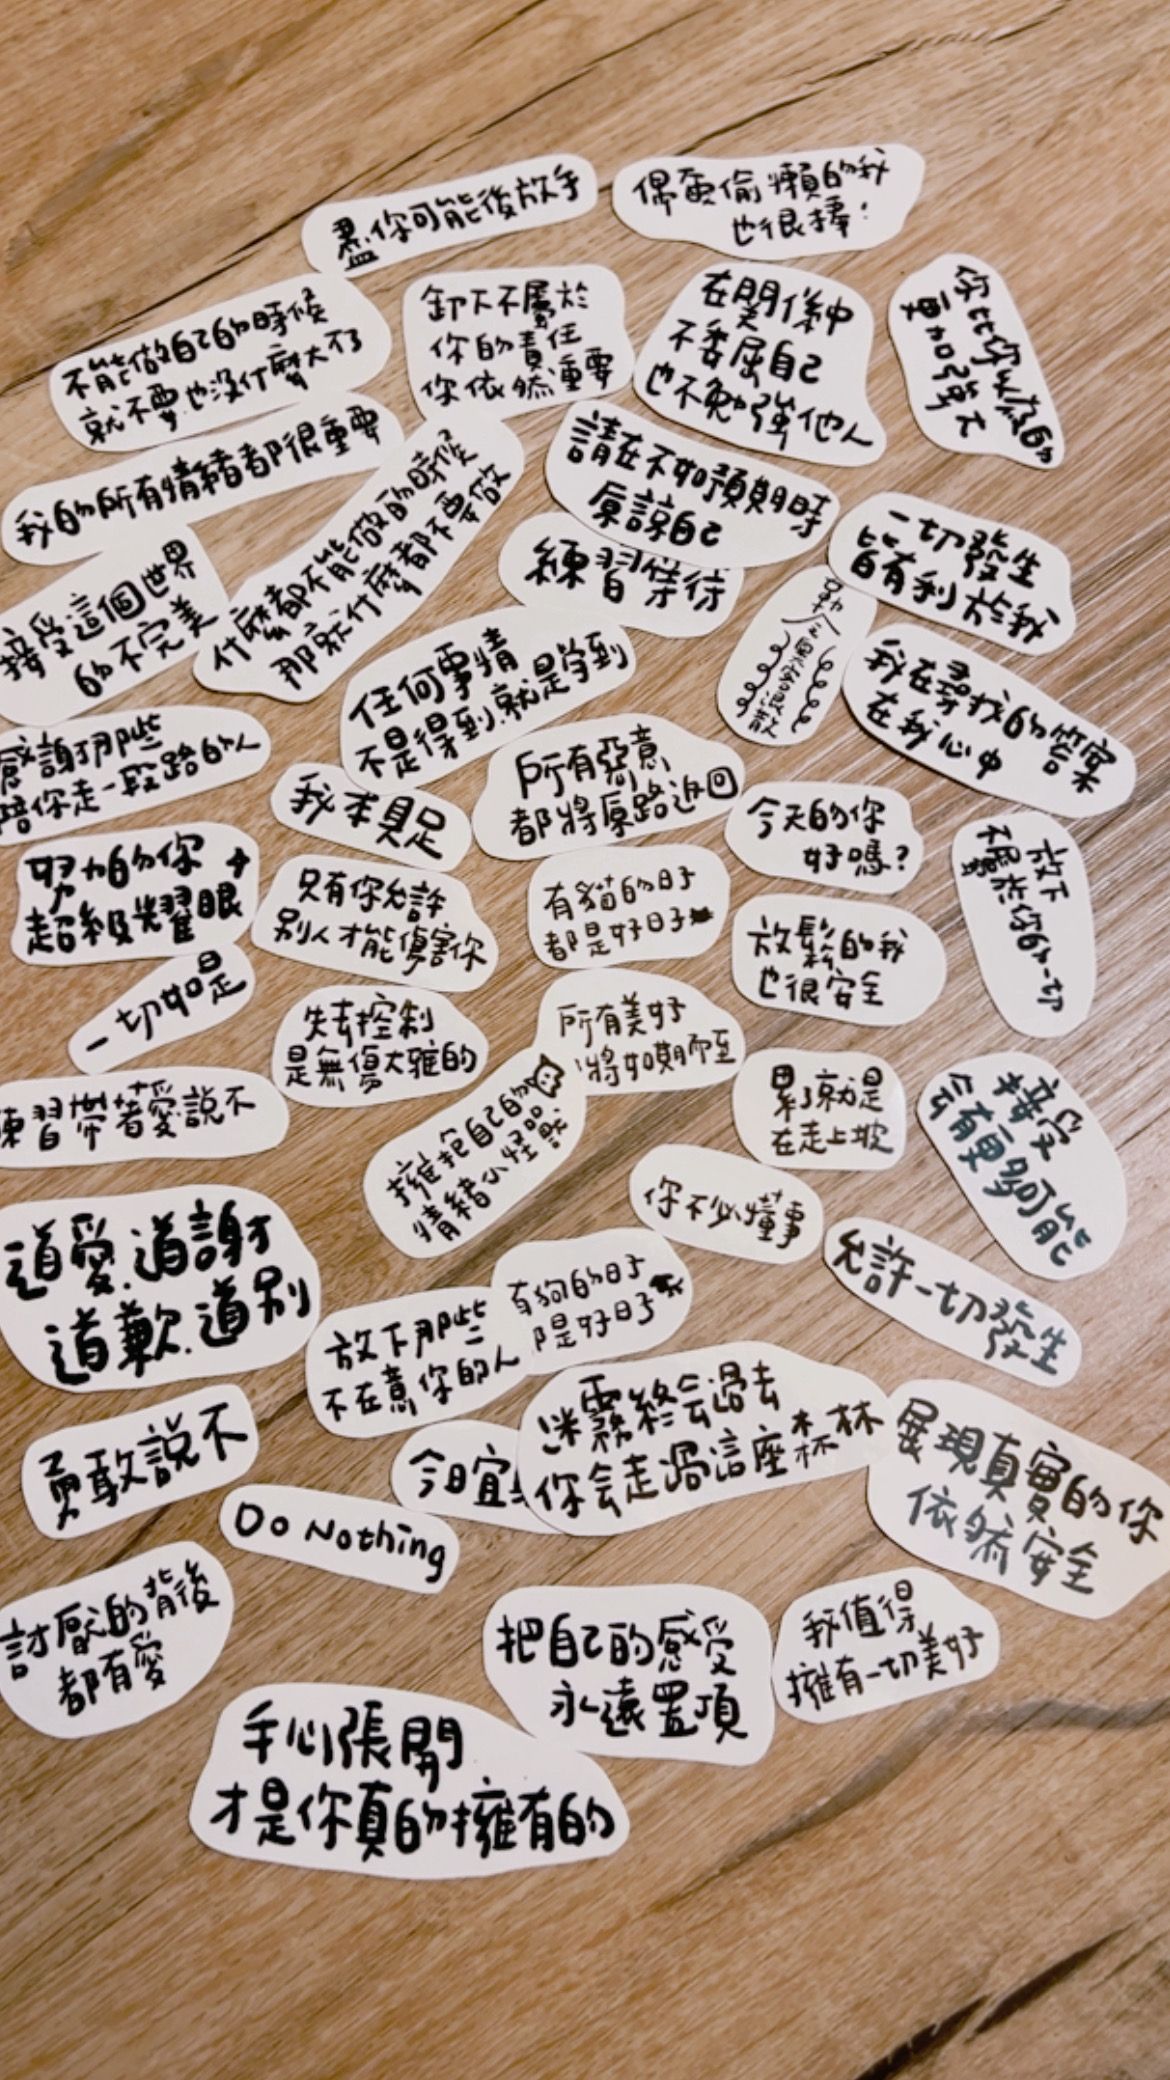 盡你可能後放手
偶爾偷懶的我
也很棒！
不能做自己的時候
就不要.也沒什麼大不了
卸下不屬於
你的責任
你依然重要
在關係中
不委屈自己
也不勉強他人
你比你以為的
更加強大
我的所有情緒都很重要
什麼都不能做的時候
那就什麼都不要做
請在不如預期時
原諒自己
練習等待
一切發生
皆有利於我
接受這個世界
的不完美
任何事情
不是得到.就是學到
我在尋找的答案
在我心中
感謝那些
陪你走一段路的人
我本具足
所有惡意
都將原路返回
今天的你
好嗎？
放下
不屬於你的一切
努力的你
超級耀眼
只有你允許
別人才能傷害你
有貓的日子
都是好日子
放鬆的我
也很安全
一切如是
失去控制
是無傷大雅的
所有美好
將如期而至
練習帶著愛說不
擁抱自己的
情緒小怪獸
累了就是
在走上坡
接受
會有更多可能
你不必懂事
道愛.道謝
道歉.道別
放下那些
不在意你的人
有狗的日子
是好日子
允許一切發生
勇敢說不
今日宜
迷霧終會過去
你会走過這座森林
展現真實的你
依然安全
Do Nothing
討厭的背後
都有愛
把自己的感受
永遠置頂
我值得
擁有一切美好
手心張開
才是你真的擁有的